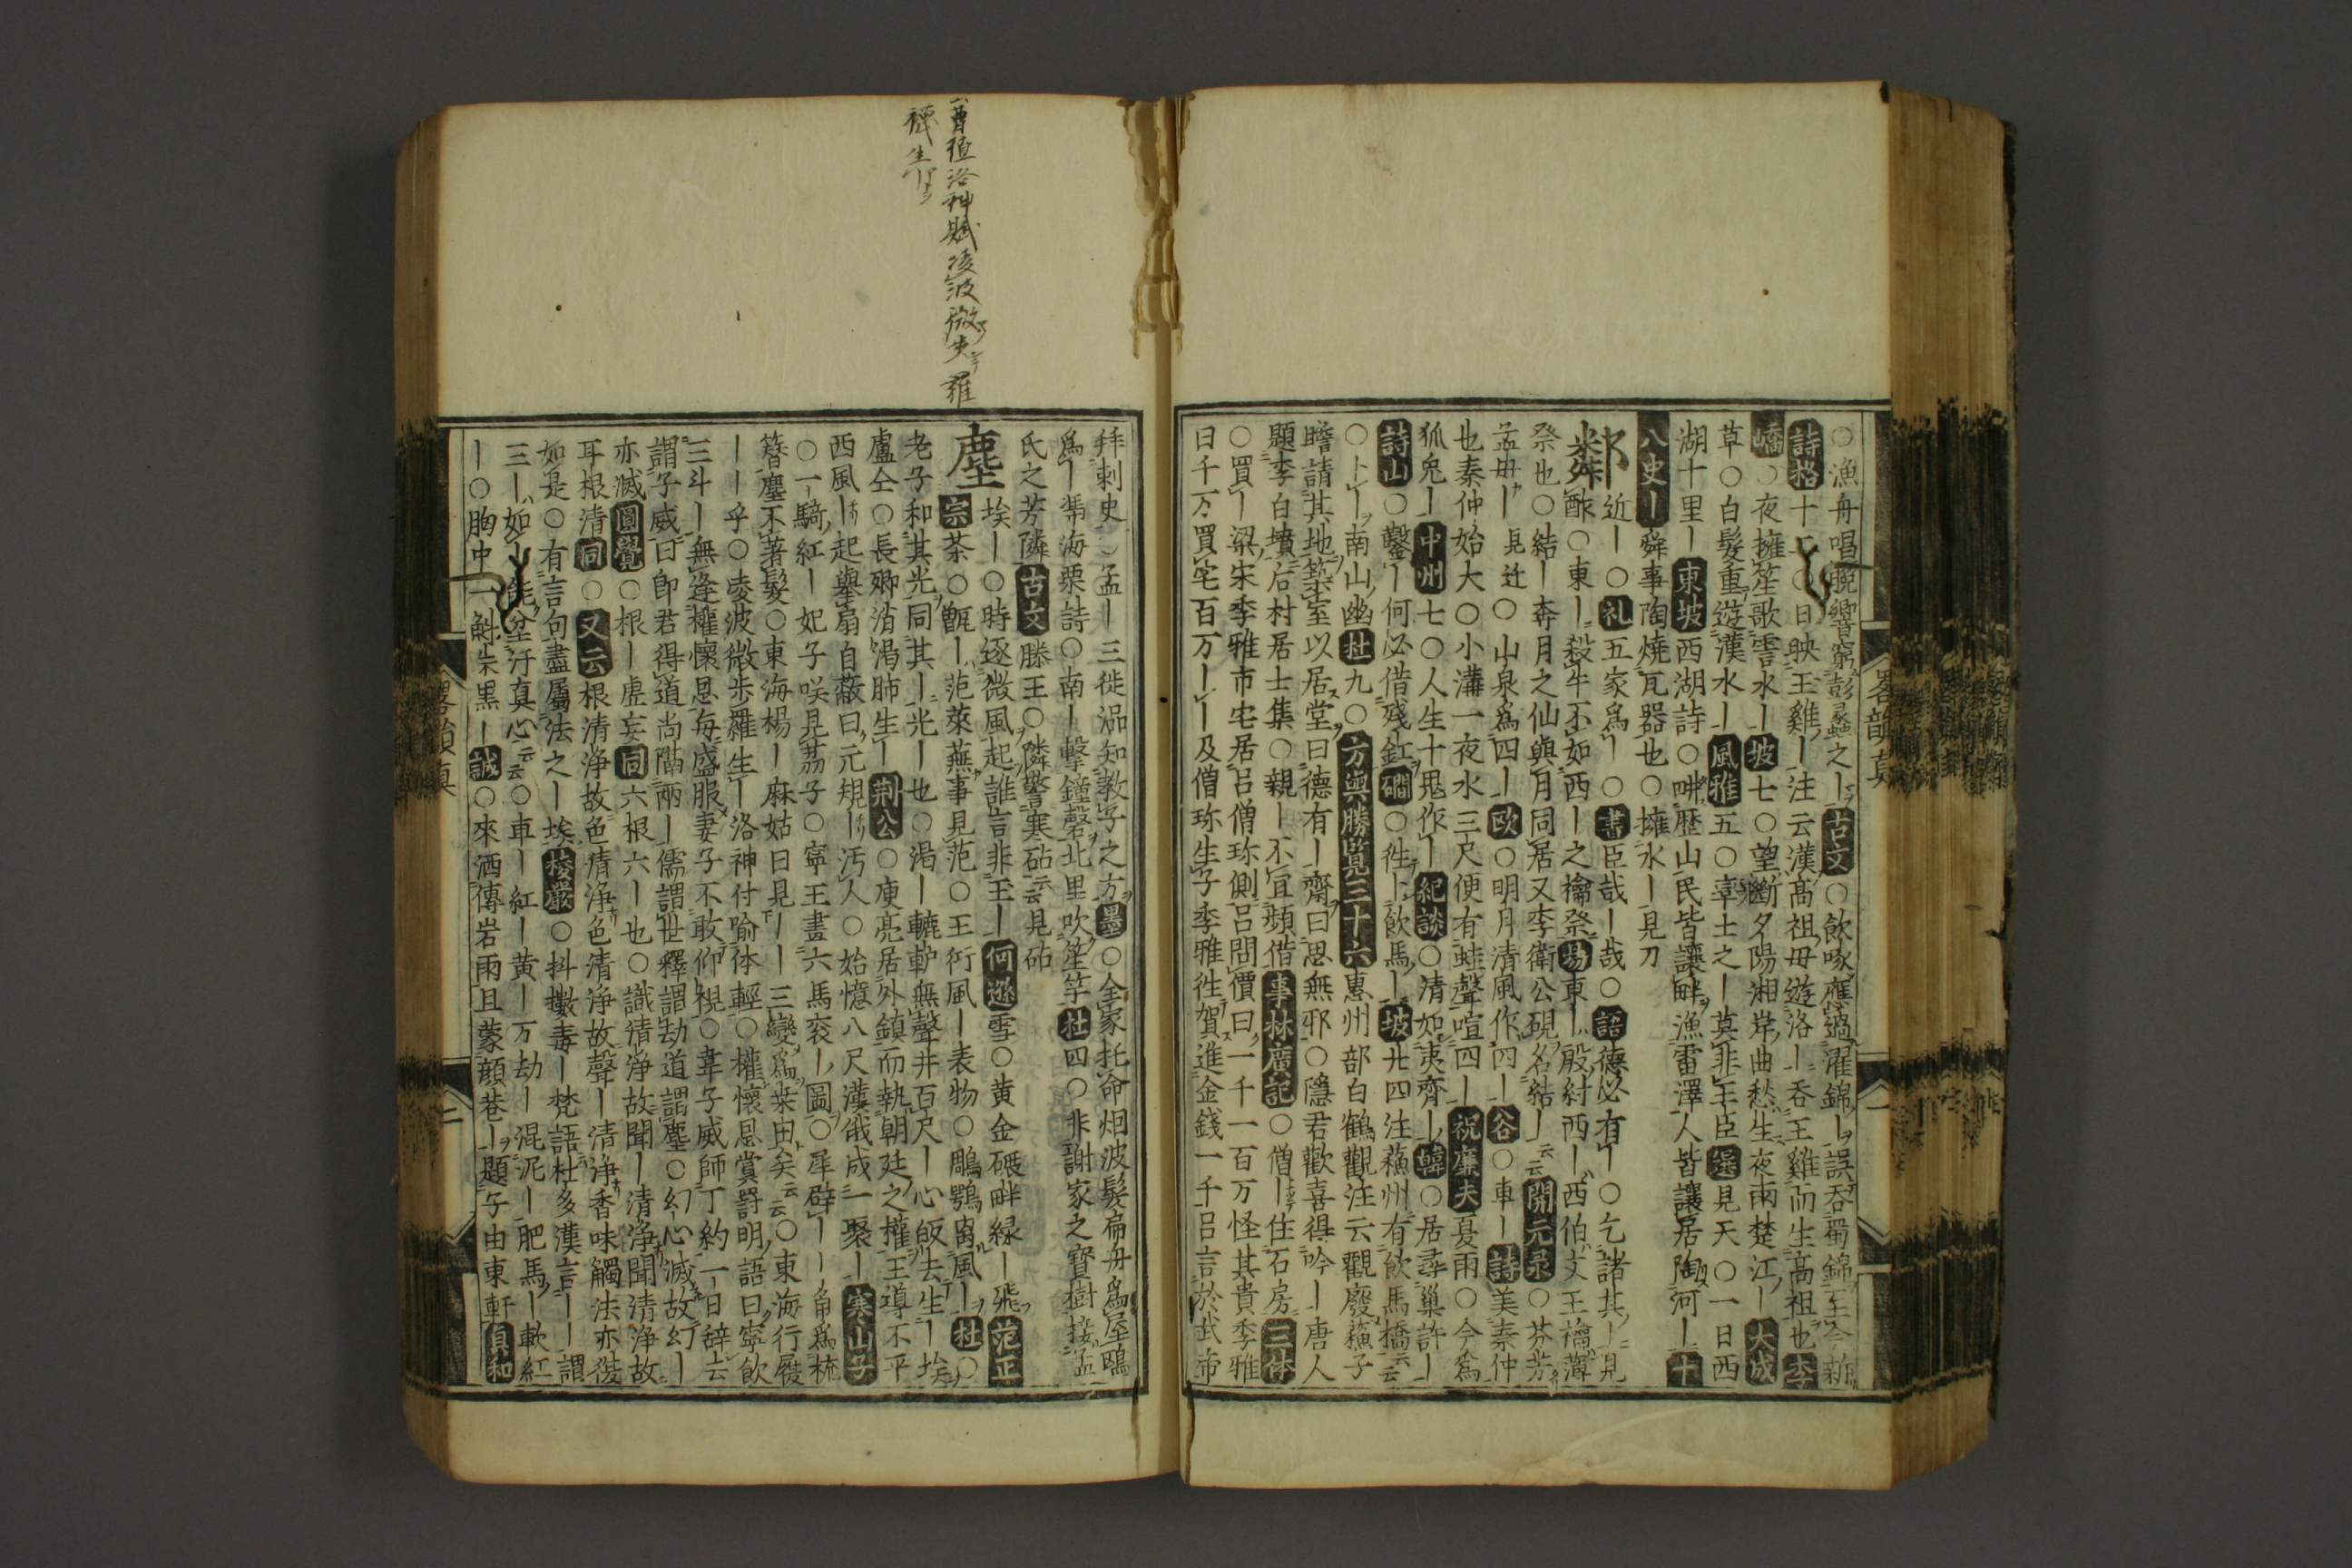 ○漁舟唱晩響窮彭蠡之｜古文○飲啄應過濯錦｜誤吞蜀錦至今新
詩格十一○日映玉雞｜注云漢高祖母遊洛｜吞玉雞而生高祖也李
嶠○夜擁笙歌霅水｜坡七○望斷夕陽湘岸曲愁生夜雨楚江｜大成
草○白髮重遊漢水｜風雅五○率土之｜莫非王臣選見天○一日西
湖十里｜東坡西湖詩○畊歷山民皆讓畔漁雷澤人皆讓居陶河｜十
八史｜舜事陶燒瓦器也○擁水｜見刀
鄰近｜○礼五家為｜○書臣哉｜哉○語德必有｜○乞諸其｜見
酢○東｜殺牛不如西｜之禴祭易東｜殷紂西｜西伯文王禴薄
祭也○結｜奔月之仙與月同居又李衛公硯名結｜云云開元录○芬芳
孟母｜見辻○山泉為四｜欧○明月清風作四｜谷○車｜詩美秦仲
也秦仲始大○小溝一夜水三尺便有蛙聲喧四｜祝廉夫夏雨○今為
狐兔｜中州七○人生十鬼作｜紀談○清如夷齊｜韓○居尋巢許｜
詩山○鑿｜何必借殘釭磵○徃｜飲馬｜坡廿四注蘓州有飲馬橋云云
○卜｜南山幽杜九○方輿勝覧三十六惠州部白鶴觀注云觀廢蘓子
瞻請其地築室以居堂曰德有｜齋曰思無邪○隱君歡喜得吟｜唐人
題李白墳后村居士集○親｜不宜頻借事林廣記○僧｜住石房三体
○買｜梁宋季雅市宅居呂僧珎側呂問價曰一千一百万怪其貴季雅
曰千万買宅百万｜｜及僧珎生子季雅徃賀進金錢一千呂言於武帝
拜刺史○孟｜三徙㴞知教子之方墨○全家托命烟波髮扁舟為屋鷗
為｜犂海粟詩○南｜擊鐘磬北里吹笙竽杜四○非謝家之寶樹接孟
氏之芳隣古文滕王○隣警寒砧云云見砧
塵埃｜○時逐微風起誰言非玉｜何遜雪○黄金碾畔緑｜飛范正
宗茶○甑｜范萊蕪事見范○王衍風｜表物○鵰鶚离風｜杜○
老子和其光同其｜光｜也○渴｜轆轤無聲井百尺｜心皈去生｜埃
盧仝○長卿消渴肺生｜荆公○庾亮居外鎮而執朝廷之權王導不平
西風｜起擧扇自蔽曰元規｜汚人○始憶八尺漢俄成一聚｜寒山子
○一騎紅｜妃子咲見茘子○寧王畫六馬衮｜圖○犀辟｜｜角為梳
簪塵不著髮○東海楊｜麻姑曰見｜｜三變為桒田矣云云○東海行屐
｜｜乎○凌波微歩羅生｜洛神付喻体輕○權懷恩賞罸明語曰寧飲
三斗｜無逢權懷恩毎盛服妻子不敢仰視○韋子威師丁約一日辞去
謂子威曰郎君得道尚隔兩｜儒謂世釋謂劫道謂塵○幻心滅故幻｜
亦滅圓覺○根｜虚妄同六根六｜也○識清淨故聞｜清淨聞清淨故
耳根清同○又云根清淨故色｜清淨色清淨故聲｜清淨香味觸法亦復
如是○有言句盡屬法之｜埃棱嚴○抖擻毒｜梵語杜多漢言｜｜謂
三｜如｜能坌汗真心云云○車｜紅｜黄｜万劫｜混泥｜肥馬｜軟紅
｜○胸中一斛柴黒｜誠○來洒傳岩雨且蒙顔巷｜題子由東軒真和
曹植洛神賦凌波微歩羅
襪生｜
畧韻真
一
二